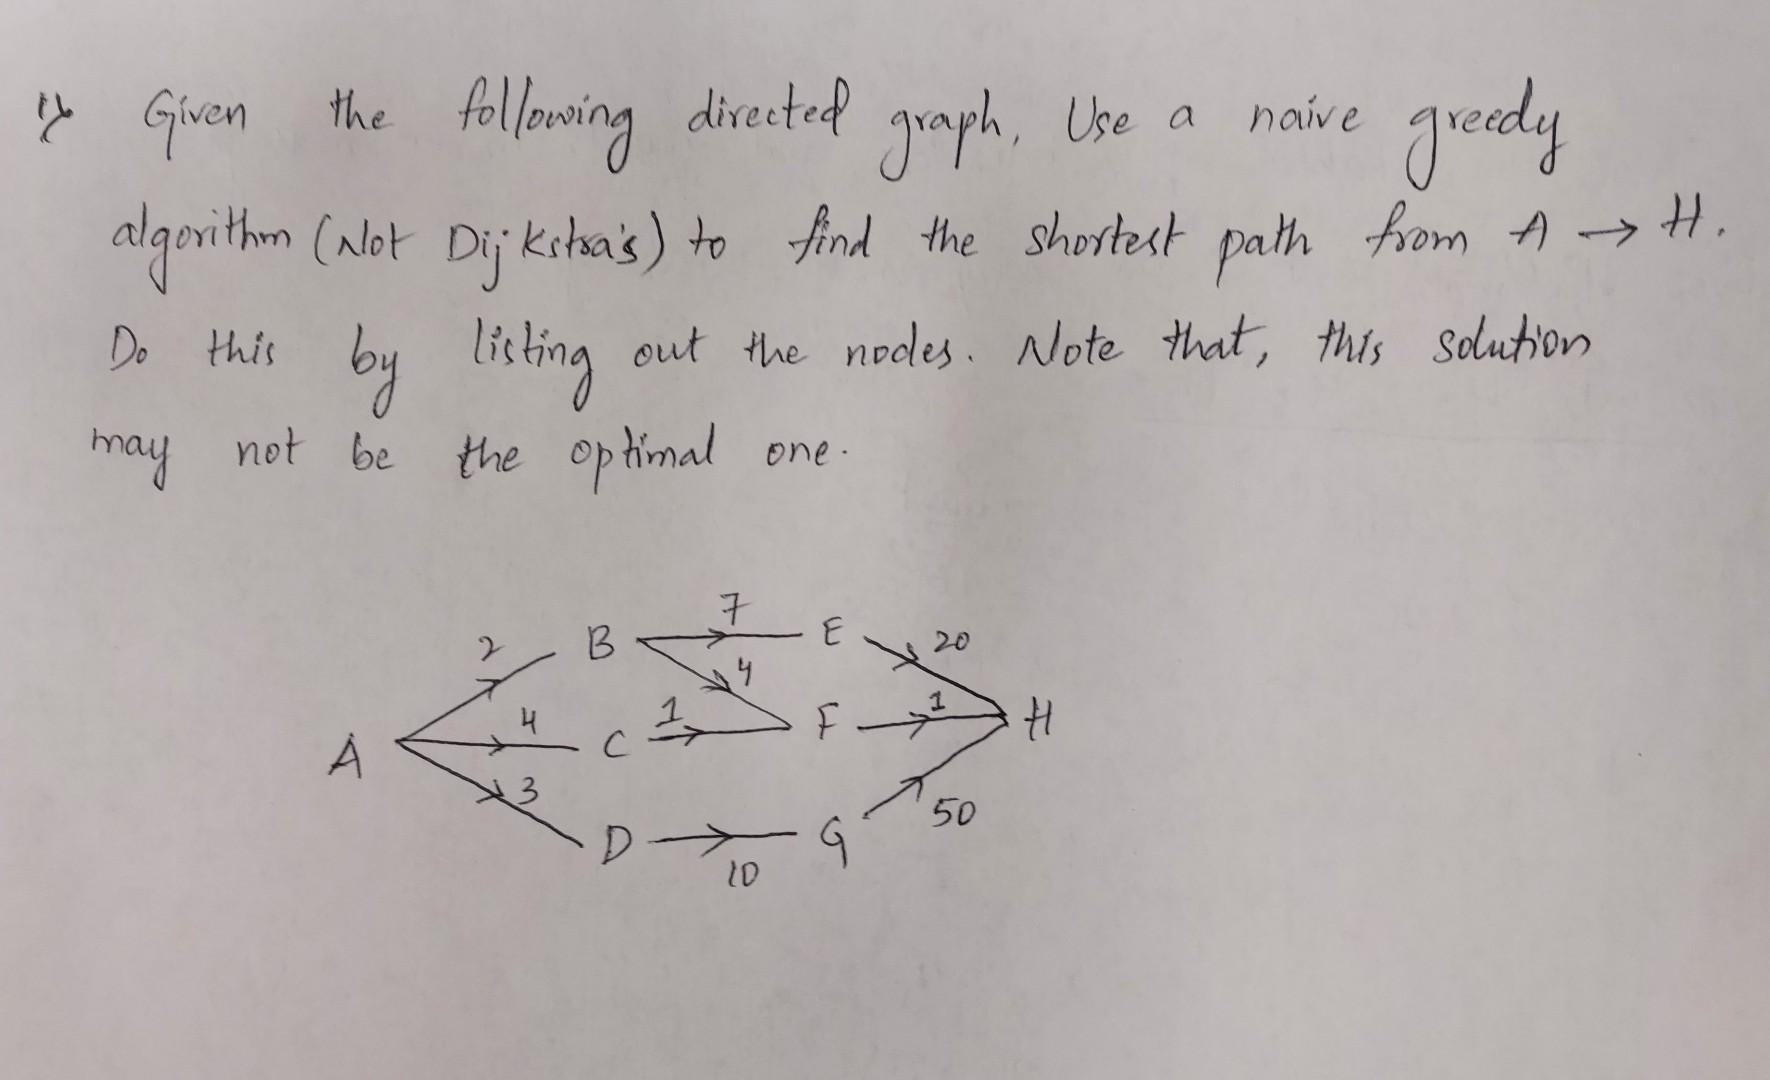 1) Given the following directed graph, Use a naive greedy
algorithm (Not Dijkstra's) to find the shortest path from A → H.
Do this by listing out the nodes. Note that, this solution
may not be the optimal one.
7
2 B E 20
4
4 1 1
A C F H
3
D G 50
10